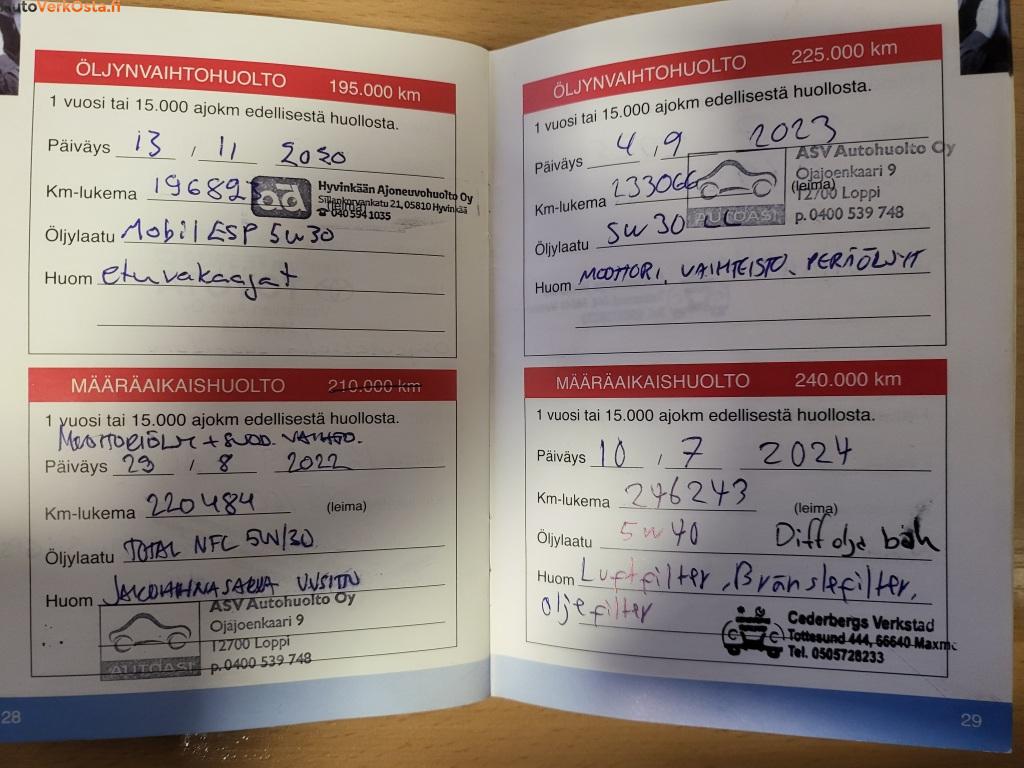 autoVerkOsta.fi
ÖLJYNVAIHTOHUOLTO 195.000 km
1 vuosi tai 15.000 ajokm edellisestä huollosta.
Päiväys 13 / 11 2020
Km-lukema 196823 (leima)
Hyvinkään Ajoneuvohuolto Oy
Sillankorvankatu 21, 05810 Hyvinkää
☎ 040 594 1035
Öljylaatu Mobil ESP 5w30
Huom etuvakaajat
MÄÄRÄAIKAISHUOLTO 210.000 km
1 vuosi tai 15.000 ajokm edellisestä huollosta.
MOOTTORIÖLJY + SUOD. VAIHTO.
Päiväys 29 / 8 2022
Km-lukema 220484 (leima)
Öljylaatu TOTAL NFC 5W/30
Huom JAKOHIHNASARJA UUSITTU
ASV Autohuolto Oy
Ojajoenkaari 9
12700 Loppi
p. 0400 539 748
AUTOASI
28
ÖLJYNVAIHTOHUOLTO 225.000 km
1 vuosi tai 15.000 ajokm edellisestä huollosta.
Päiväys 4 , 9 2023
Km-lukema 233066 (leima)
ASV Autohuolto Oy
Ojajoenkaari 9
12700 Loppi
p. 0400 539 748
AUTOASI
Öljylaatu 5W30
Huom MOOTTORI, VAIHTEISTO, PERÄÖLJYT
MÄÄRÄAIKAISHUOLTO 240.000 km
1 vuosi tai 15.000 ajokm edellisestä huollosta.
Päiväys 10 , 7 2024
Km-lukema 246243 (leima)
Öljylaatu 5w40 Diff olja bak
Huom Luftfilter, Bränslefilter,
oljefilter
Cederbergs Verkstad
Tottesund 444, 66640 Maxmo
Tel. 0505728233
29